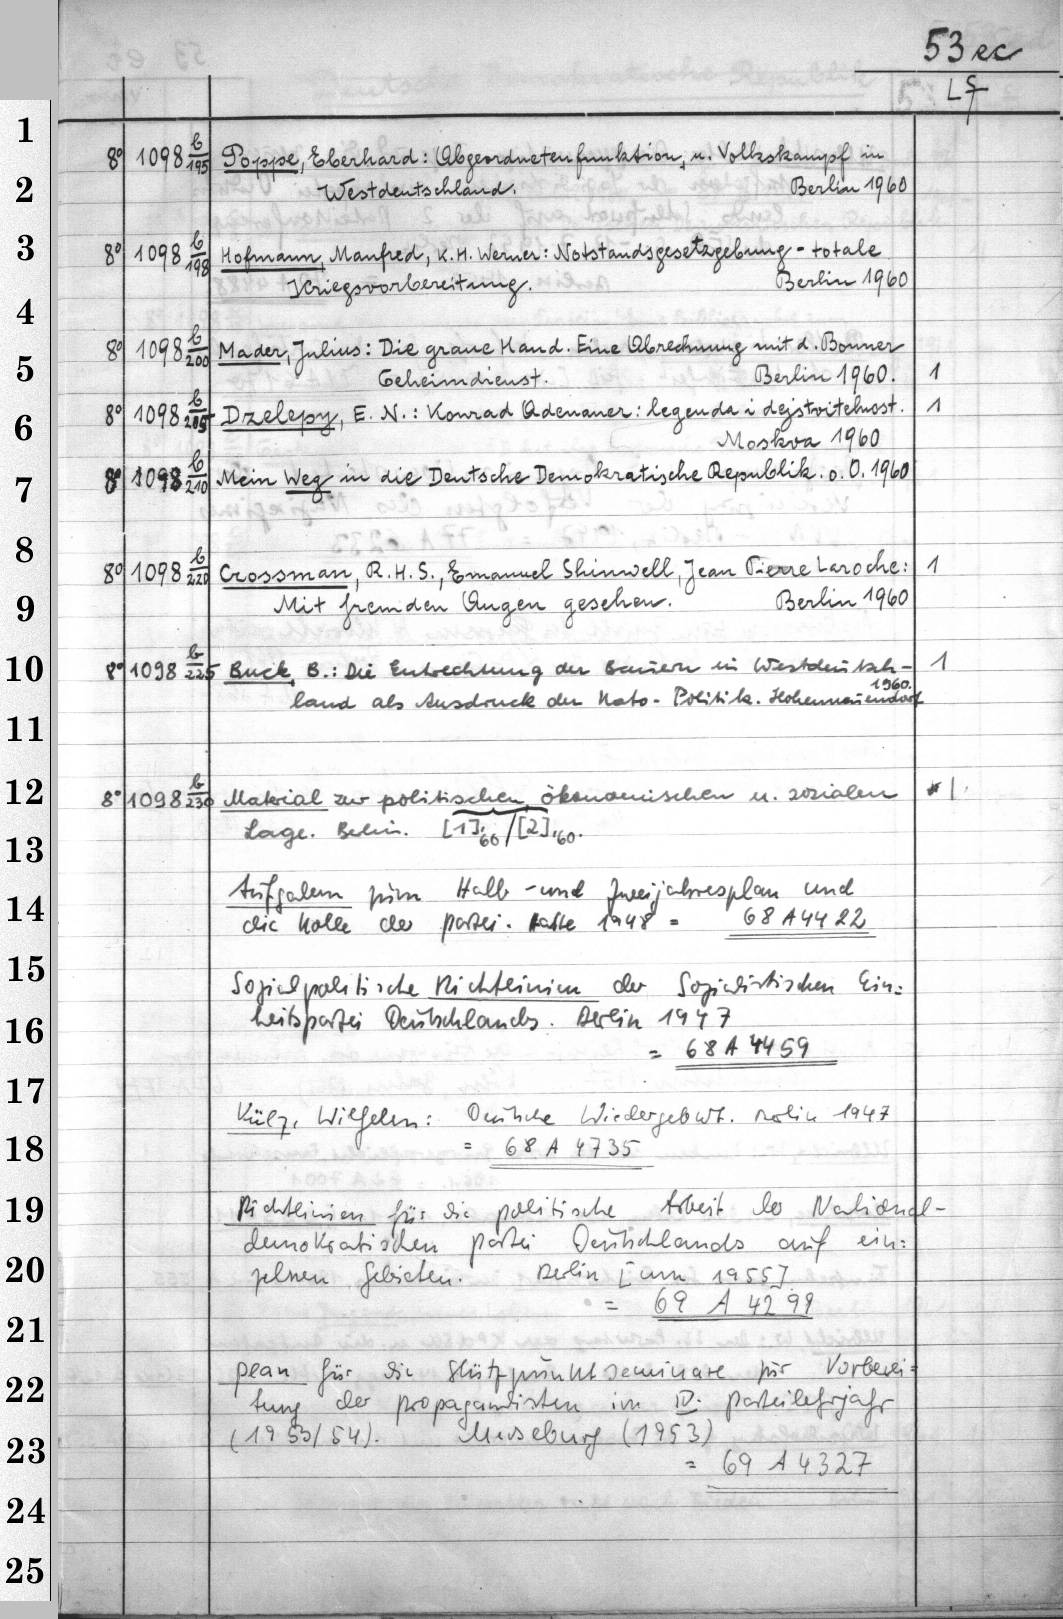 53 ec
LS
1
8° 1098 b/195 Poppe, Eberhard: Abgeordnetenfunktion u. Volkskampf in
2
Westdeutschland. Berlin 1960
3
8° 1098 b/198 Hofmann, Manfred, K.H. Werner: Notstandsgesetzgebung - totale
Kriegsvorbereitung. Berlin 1960
4
8° 1098 b/200 Mader, Julius: Die graue Hand. Eine Abrechnung mit d. Bonner
5
Geheimdienst. Berlin 1960. 1
6
8° 1098 b/205 Dzelepy, E. N.: Konrad Adenauer: legenda i dejstvitelnost. 1
Moskva 1960
7
8° 1098 b/210 Mein Weg in die Deutsche Demokratische Republik. o. O. 1960
8
8° 1098 b/220 Crossman, R.H.S., Emanuel Shinwell, Jean Pierre Laroche: 1
9
Mit fremden Augen gesehen. Berlin 1960
10
8° 1098 b/225 Buck, B.: Die Entrechtung der Bauern in Westdeutsch- 1
land als Ausdruck der Nato-Politik. Hohennauendorf 1960.
11
12
8° 1098 b/230 Material zur politischen, ökonomischen u. sozialen * 1.
13
Lage. Berlin. [1].60/[2].60.
14
Aufgaben zum Halb- und Zweijahresplan und
die Rolle der Partei. Halle 1948 = 68 A 4422
15
Sozialpolitische Richtlinien der Sozialistischen Ein=
16
heitspartei Deutschlands. Berlin 1947
= 68 A 4459
17
Külz, Wilhelm: Deutsche Wiedergeburt. Berlin 1947
18
= 68 A 4735
19
Richtlinien für die politische Arbeit der National-
demokratischen Partei Deutschlands auf ein=
20
zelnen Gebieten. Berlin [um 1955]
= 69 A 4298
21
Plan für die Stützpunktseminare zur Vorberei=
22
tung der Propagandisten im IV. Parteilehrjahr
23
(1953/54). Merseburg (1953)
= 69 A 4327
24
25